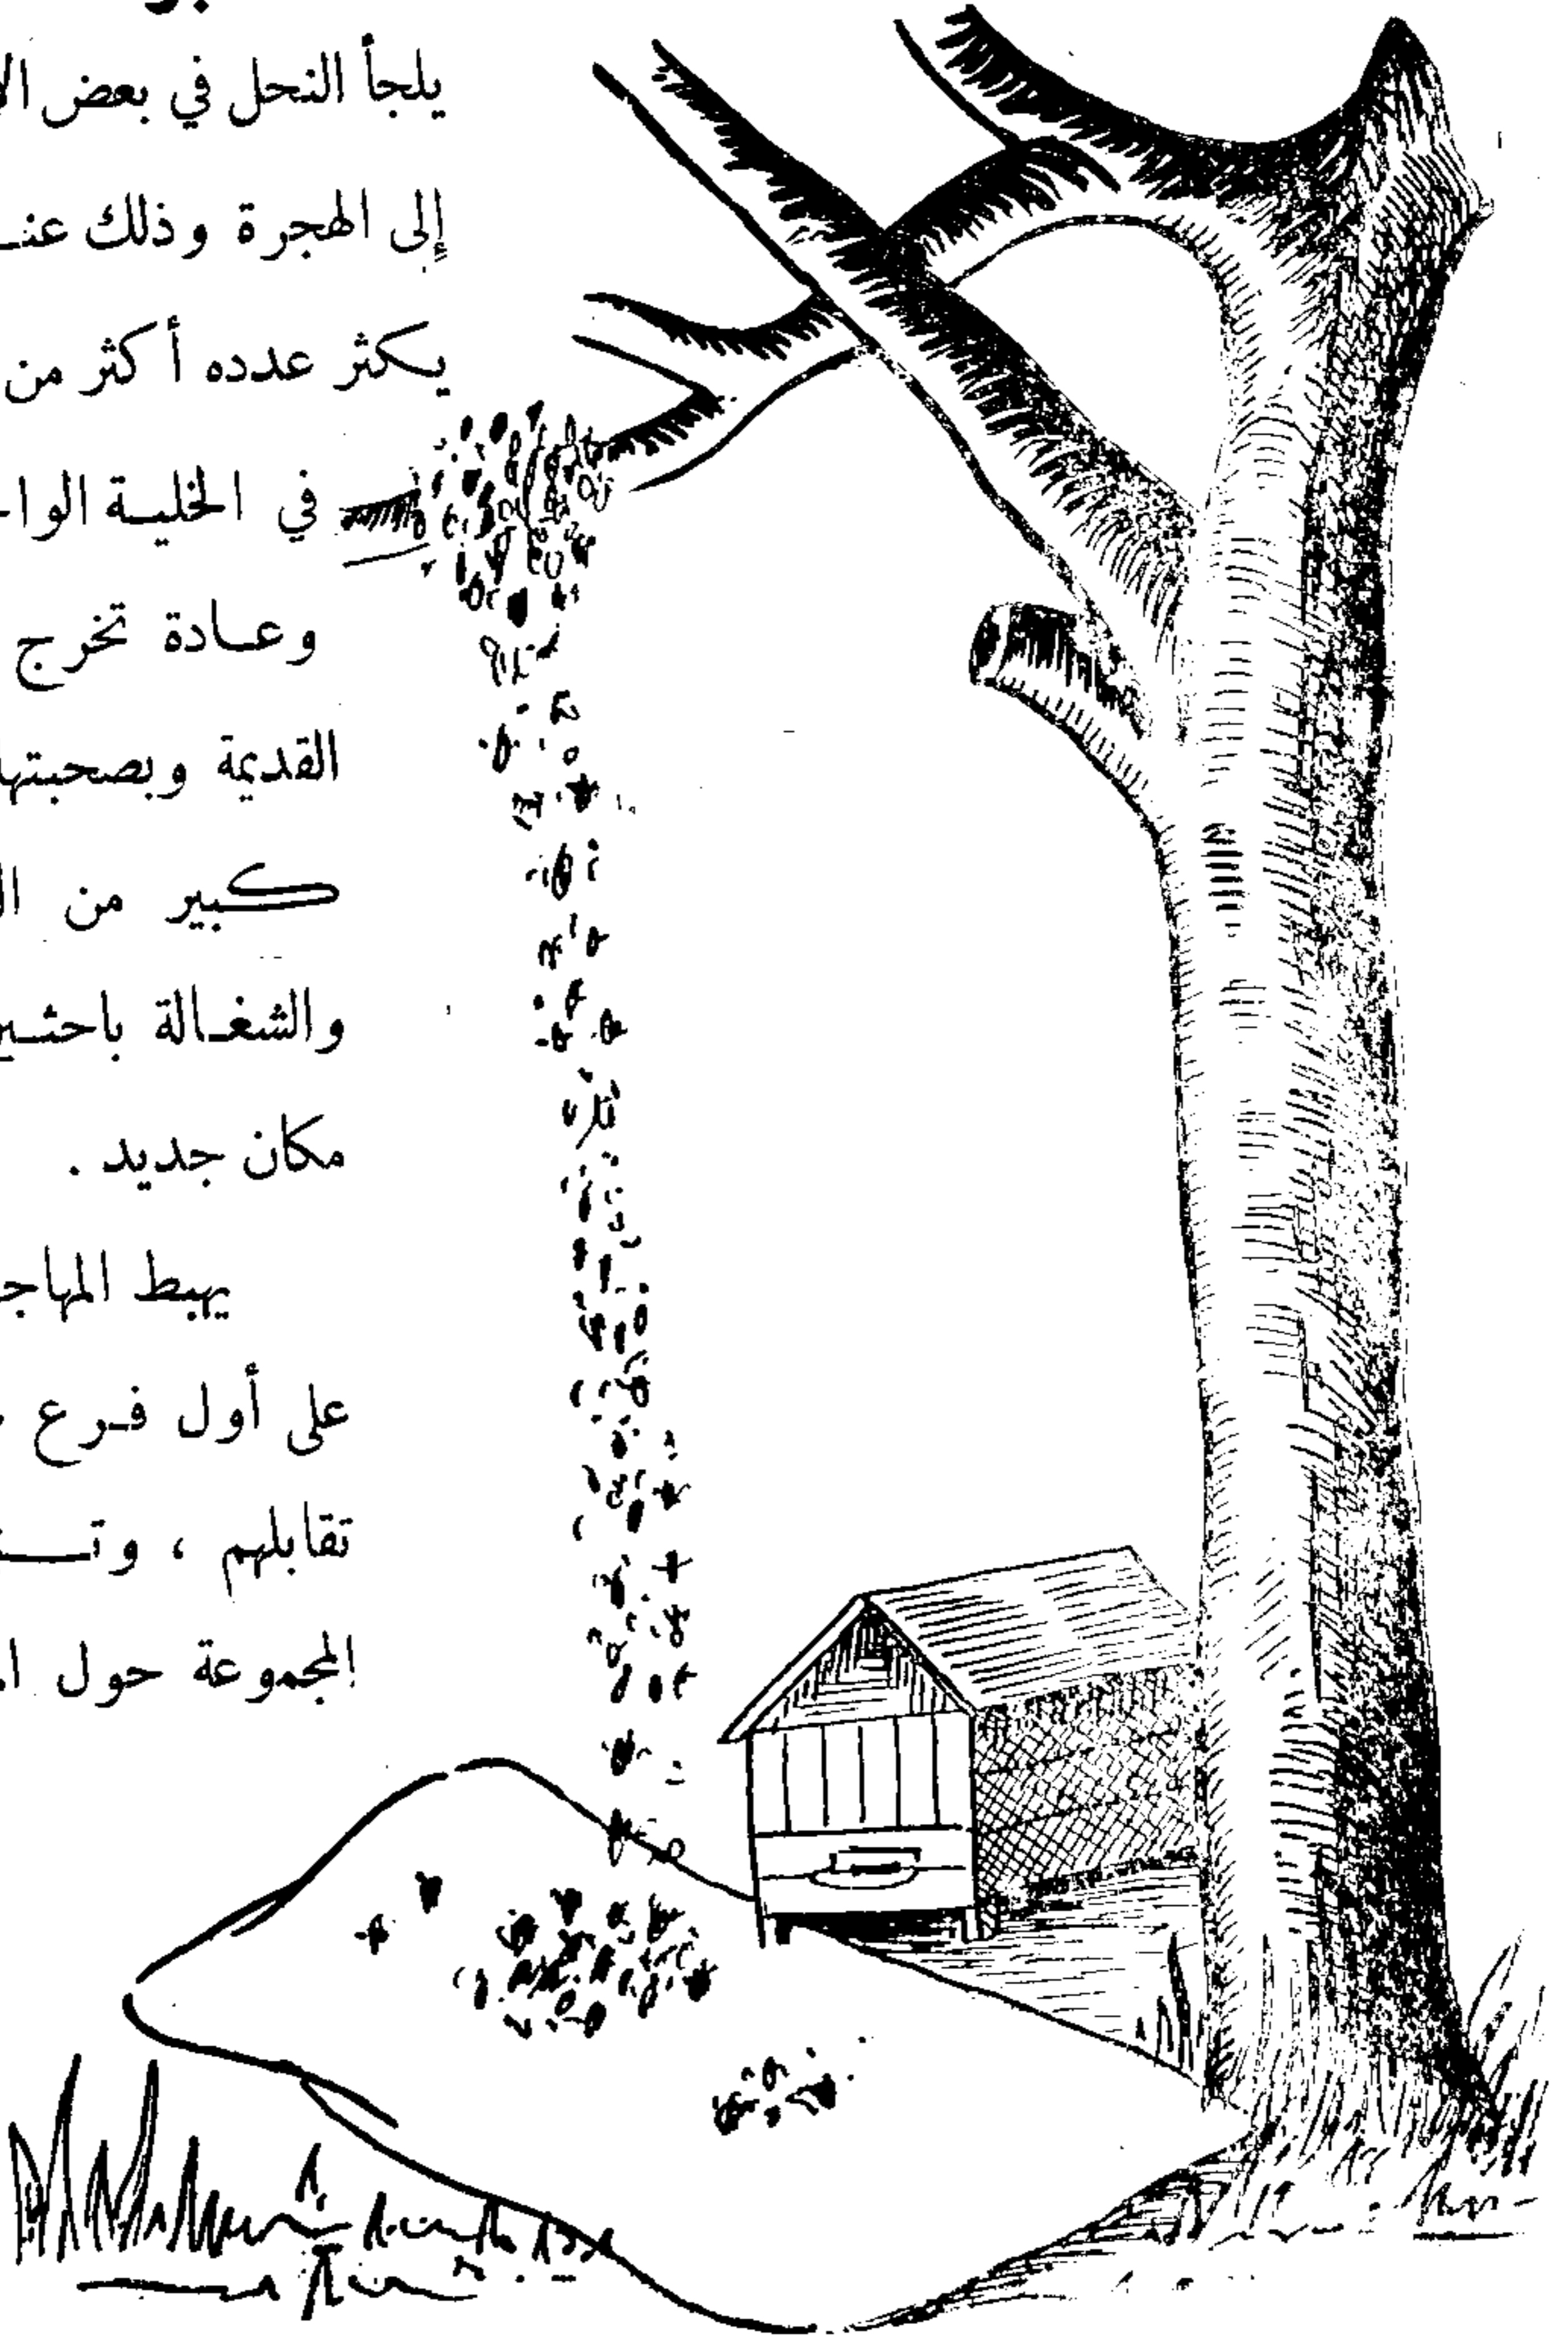 يلجأ النحل في بعض
إلى الهجرة وذلك
يكثر عدده أكثر من
في الخلية
وعادة تخرج
القديمة وبصحبتها
كبير من
والشغالة
مكان جديد .
يهبط
على أول فرع
تقابلهم ،
المجموعة حول